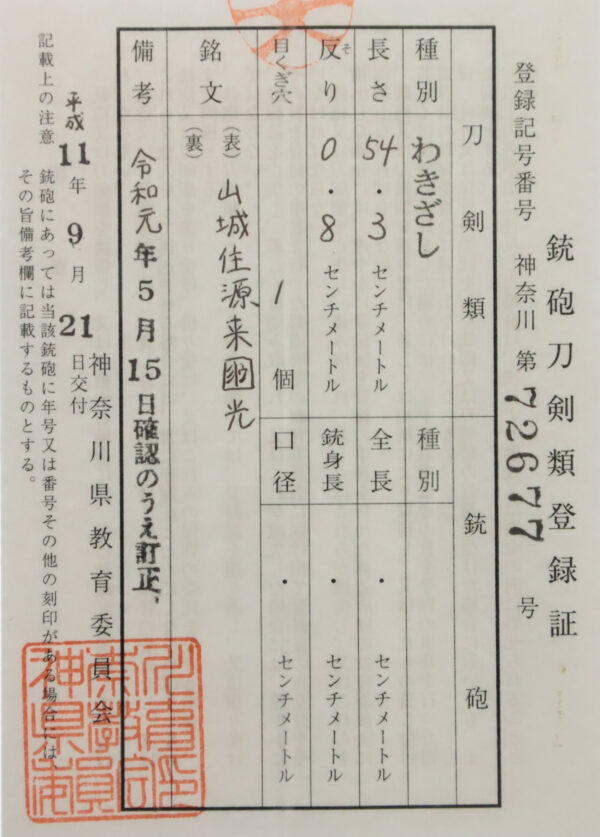 銃砲刀剣類登録証
登録記号番号 神奈川 第 72677 号
刀剣類
種別 わきざし
長さ 54.3 センチメートル
反り 0.8 センチメートル
そ
目くぎ穴 1 個
銘文
(表) 山城住源来國光
(裏)
備考 令和元年5月15日確認のうえ訂正、
銃砲
種別
全長 ・ センチメートル
銃身長 ・ センチメートル
口径 ・ センチメートル
平成11年9月21日交付
神奈川県教育委員会
記載上の注意 銃砲にあっては当該銃砲に年号又は番号その他の刻印がある場合には、
その旨備考欄に記載するものとする。